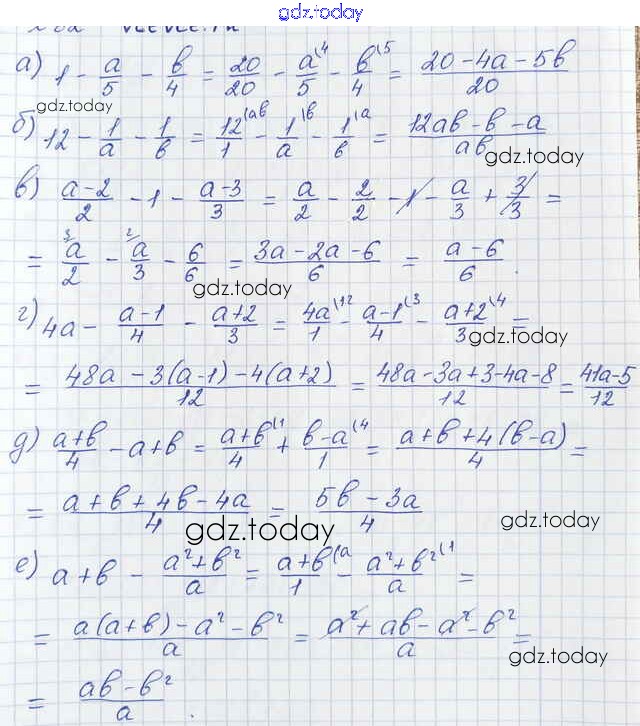 gdz.today
а) 1 - a/5 - b/4 = 20/20 - a\4/5 - b\5/4 = (20-4a-5b)/20
gdz.today
б) 12 - 1/a - 1/b = 12\ab/1 - 1\b/a - 1\a/b = (12ab-b-a)/ab
gdz.today
в) (a-2)/2 - 1 - (a-3)/3 = a/2 - 2/2 - 1 - a/3 + 3/3 =
= 3 a/2 - 2 a/3 - 6/6 = (3a-2a-6)/6 = (a-6)/6.
gdz.today
г) 4a - (a-1)/4 - (a+2)/3 = 4a\12/1 - (a-1)\3/4 - (a+2)\4/3 =
gdz.today
= (48a - 3(a-1) - 4(a+2))/12 = (48a-3a+3-4a-8)/12 = (41a-5)/12
д) (a+b)/4 - a+b = (a+b)\1/4 + (b-a)\4/1 = (a+b+4(b-a))/4 =
= (a+b+4b-4a)/4 = (5b-3a)/4
gdz.today
gdz.today
е) a+b - (a²+b²)/a = (a+b)\a/1 - (a²+b²)\1/a =
= (a(a+b)-a²-b²)/a = (a²+ab-a²-b²)/a =
gdz.today
= (ab-b²)/a.
gdz.today